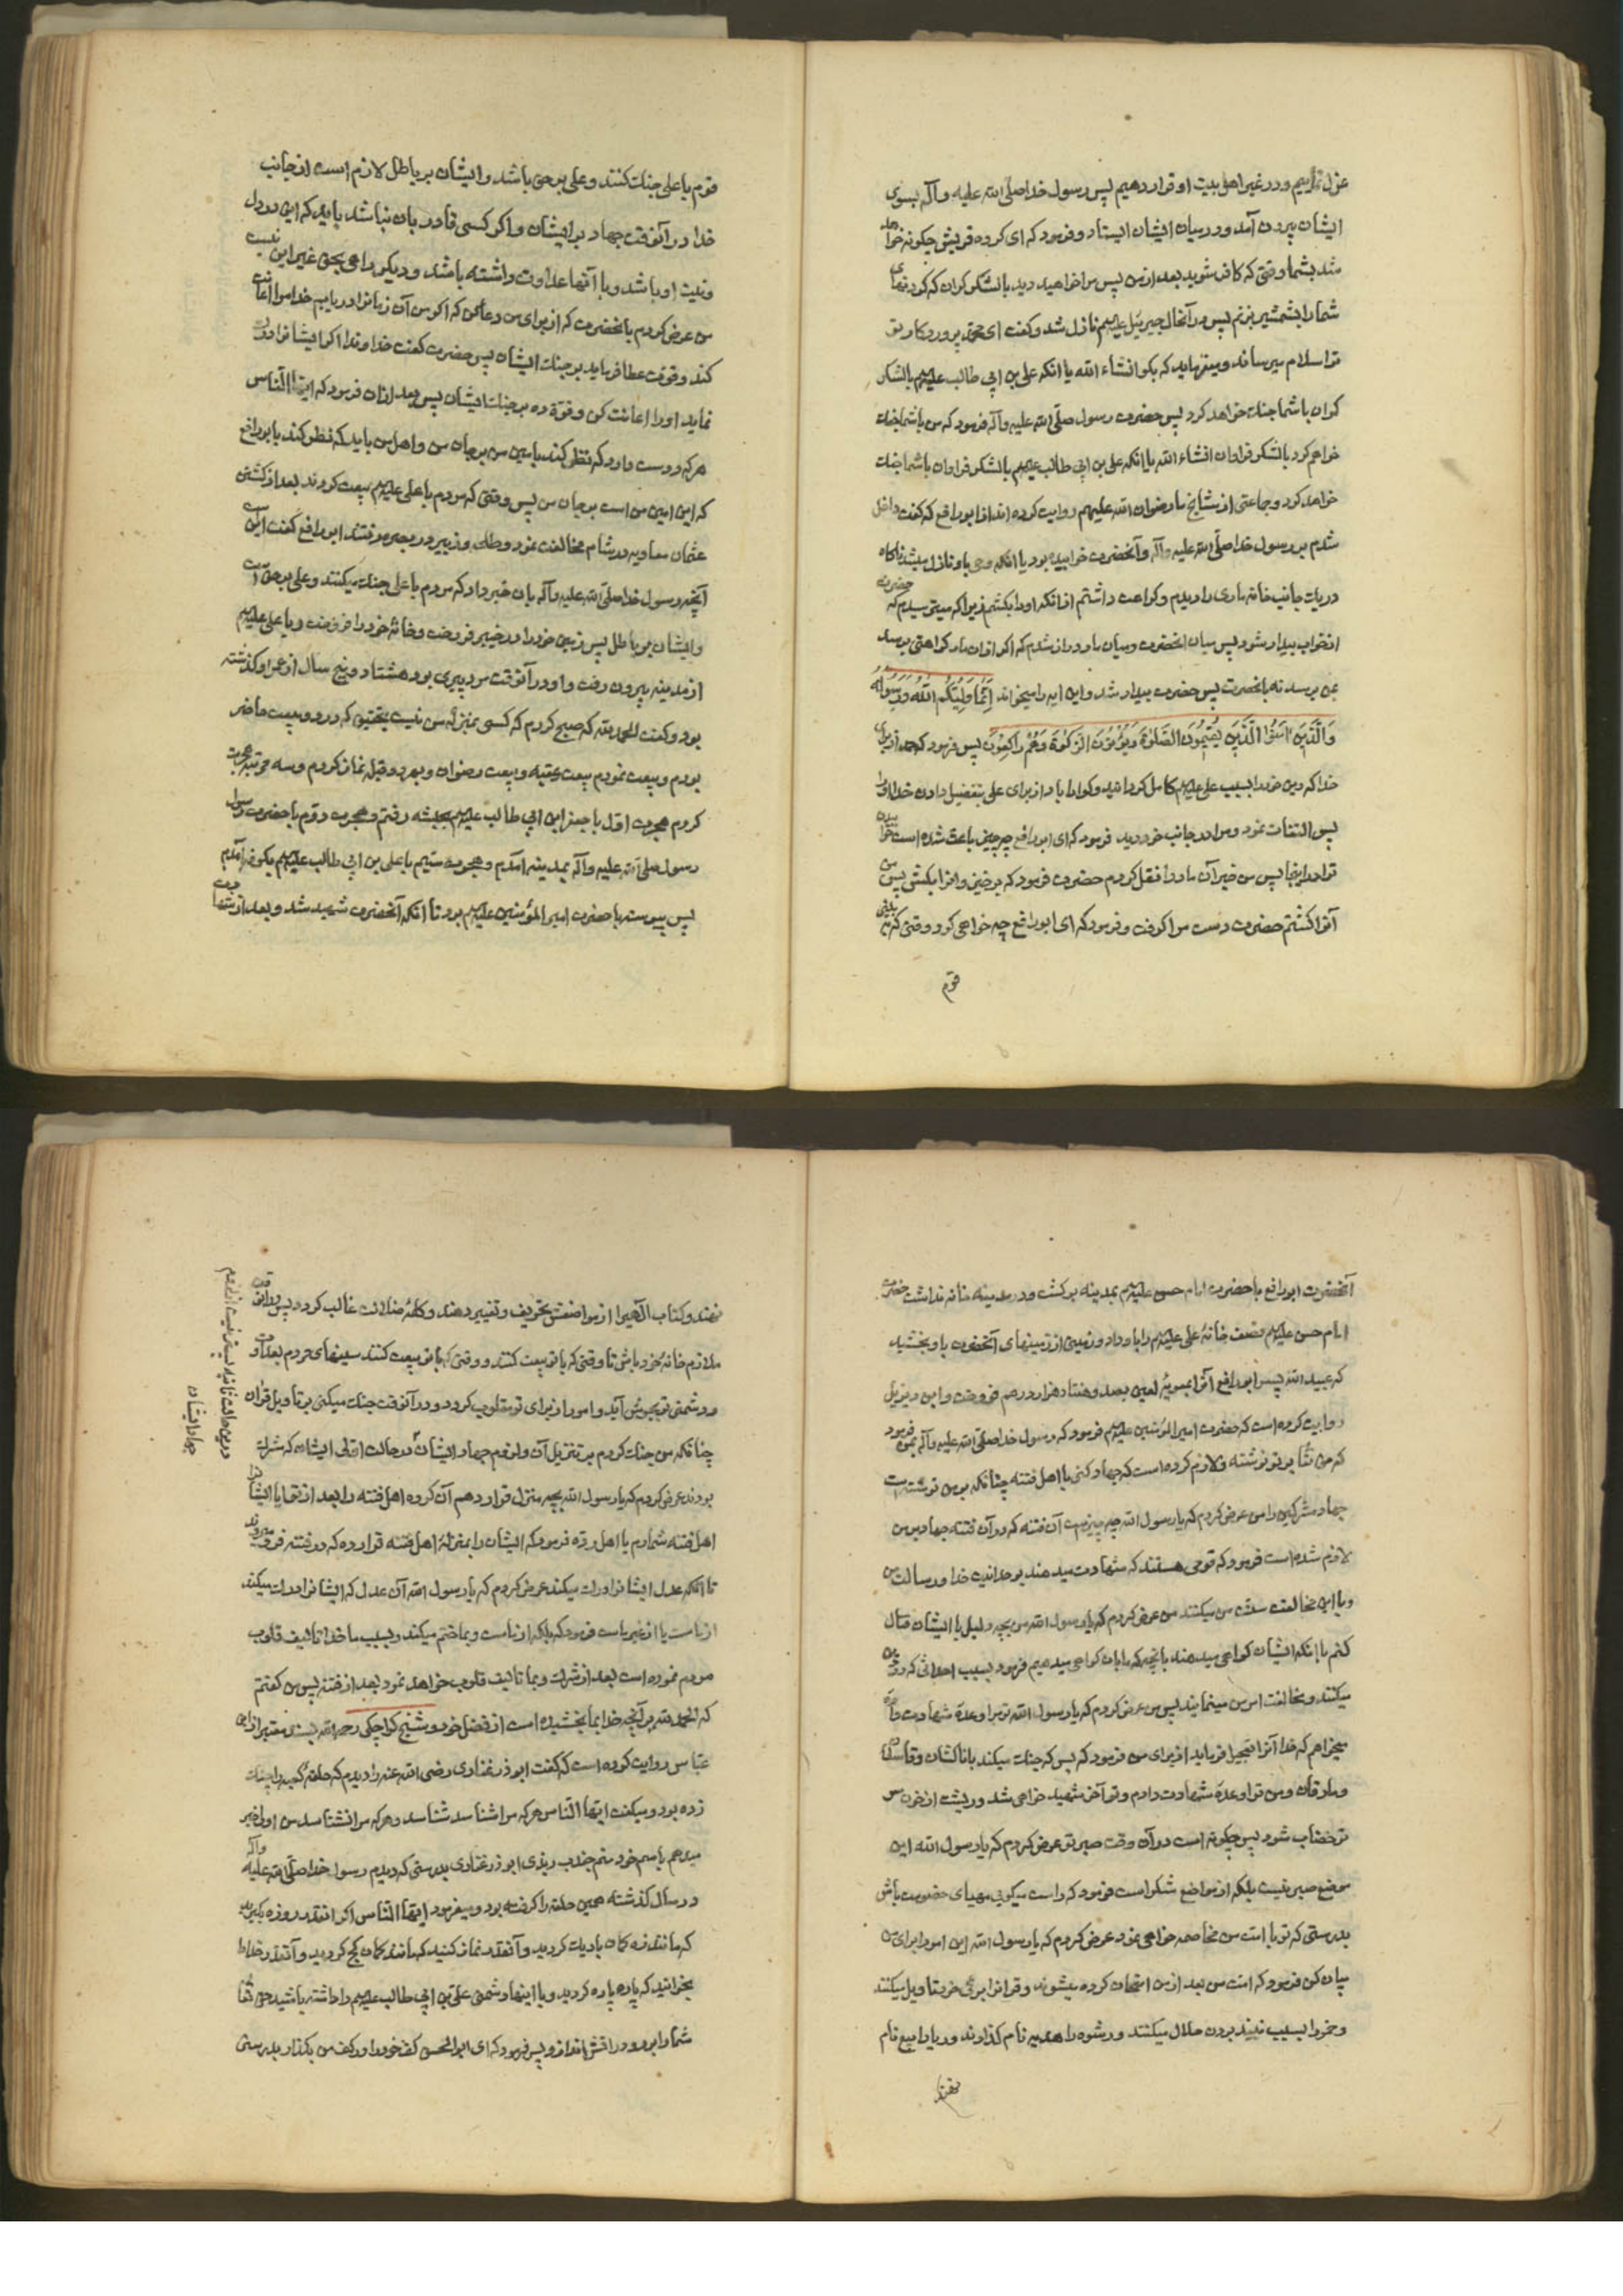 عزل نماییم و در غیر اهل بیت او قرار دهیم پس رسول خدا صلی الله علیه و آله بسوی
ایشان بیرون آمد و در میان ایشان ایستاد و فرمود که ای کروه قریش چکونه خواهد
شد بشما وقتی که کافر شوید بعد از من پس مرا خواهید دید با لشکر کران که کردنهای
شما را بشمشیر بزنم پس در آنحال جبرئیل علیهم نازل شد و کفت ای محمد پروردکار تو
ترا سلام میرساند و میفرماید که بکو انشاء الله یا انکه علی بن ابی طالب علیهم با لشکر
کران با شما جنک خواهد کرد پس حضرت رسول صلی الله علیه و آله فرمود که من با شما جنک
خواهم کرد با لشکر فراوان انشاء الله یا انکه علی بن ابی طالب علیهم با لشکر فراوان با شما جنک
خواهد کرد و جماعتی از مشایخ ما رضوان الله علیهم روایت کرده اند از ابو رافع که کفت داخل
شدم بر رسول خدا صلی الله علیه و آله و آنحضرت خوابیده بود یا انکه وحی باو نازل میشد ناکاه
در یک جانب خانه ماری را دیدم و کراهت داشتم از انکه او را بکشم زیرا که میترسیدم که حضرت
از خواب بیدار شود پس میان انحضرت و میان مار دراز شدم که اکر از ان مار کراهتی برسد
بمن برسد نه بانحضرت پس حضرت بیدار شد و این ایه را میخواند إنما ولیکم الله و رسوله
والذین آمنوا الذین یقیمون الصلوة و یؤتون الزکوة وهم راکعون پس فرمود که حمد از برای
خدا که دین خود را بسبب علی علیهم کامل کردانید و کوارا باد از برای علی بتفضیل دادن خدا او را
پس التفات نمود و مرا در جانب خود دید فرمود که ای ابو رافع چه چیز باعث شده است خوابیدن
ترا در اینجا پس من خبر آن مار را نقل کردم حضرت فرمود که برخیز و انرا بکش پس من
آنرا کشتم حضرت دست مرا کرفت و فرمود که ای ابو رافع چه خواهی کرد وقتی که به بینی
قوم
قوم با علی جنک کنند و علی بر حق باشد و ایشان بر باطل لازم است از جانب
خدا در آنوقت جهاد بر ایشان و اکر کسی قادر بان نباشد باید که این در دل
و نیت او باشد و با آنها عداوت داشته باشد و دیکر راهی بحق غیر این نیست
من عرض کردم بانحضرت که از برای من دعا کن که اکر من آن زمانرا دریابم خدا مرا اعانت
کند و قوت عطا فرماید بر جنک ایشان پس حضرت کفت خداوندا اکر ایشانرا درک
نماید او را اعانت کن و قوة ده بر جنک ایشان پس بعد از ان فرمود که ایها الناس
هر که دوست دارد که نظر کند بامین من بر جان من و اهل من باید که نظر کند بابو رافع
که این امین من است بر جان من پس وقتی که مردم با علی علیهم بیعت کردند بعد از کشتن
عثمان معاویه در شام مخالفت نمود و طلحه و زبیر در بصره رفتند ابو رافع کفت اینست
آنچه رسول خدا صلی الله علیه و آله بان خبر داد که مردم با علی جنک میکنند و علی بر حق است
و ایشان بر باطل پس زمین خود را در خیبر فروخت و خانهٔ خود را فروخت و با علی علیهم
از مدینه بیرون رفت و او در آنوقت مرد پیری بود هشتاد و پنج سال از عمر او کذشته
بود و کفت الحمد لله که صبح کردم که کسی بمنزلهٔ من نیست بتحقیق که در دو بیعت حاضر
بودم و بیعت نمودم بیعت عقبه و بیعت رضوان و بهر دو قبله نماز کردم و سه مرتبه هجرت
کردم هجرت اول با جعفر ابن ابی طالب علیهم بحبشه رفتم و هجرت دوم با حضرت رسول
رسول صلی الله علیه و آله بمدینه امدم و هجرت سیم با علی بن ابی طالب علیهم بکوفه آمدم
پس پیوسته با حضرت امیر المؤمنین علیهم بود تا انکه آنحضرت شهید شد و بعد از شهادت
آنحضرت ابو رافع با حضرت امام حسن علیهم بمدینه برکشت و در مدینه خانه نداشت حضرت
امام حسن علیهم نصف خانهٔ علی علیهم را باو داد و زمینی از زمینهای آنحضرت باو بخشید
که عبید الله پسر ابو رافع آنرا بمعویهٔ لعین بصد و هفتاد هزار درهم فروخت و ابن دیزیل
روایت کرده است که حضرت امیر المؤمنین علیهم فرمود که رسول خدا صلی الله علیه و آله بمن فرمود
که من بر تو نوشته و لازم کرده است که جهاد کنی با اهل فتنه چنانکه بر من نوشته است
جهاد مشرکین را من عرض کردم که یا رسول الله چه چیز است آن فتنه که در آن فتنه جهاد بر من
لازم شده است فرمود که قومی هستند که شهادت میدهند بوحدانیت خدا و رسالت من
و با این مخالفت سنت من میکنند من عرض کردم که یا رسول الله من بچه دلیل با ایشان قتال
کنم با انکه ایشان کواهی میدهند بانچه که ما بان کواهی میدهیم فرمود بسبب احداثی که در دین
میکنند و مخالفت امر من مینمایند پس من عرض کردم که یا رسول الله تو مرا وعدهٔ شهادت داده
میخواهم که خدا آنرا تعجیل فرماید از برای من فرمود که پس که جنک میکند با ناکثان و قاسطان
و مارقان و من ترا وعدهٔ شهادت دادم و تو آخر شهید خواهی شد و ریشت از خون سر
تو خضاب شود پس چکونه است در آن وقت صبر تو عرض کردم که یا رسول الله این
موضع صبر نیست بلکه از مواضع شکر است فرمود که راست میکویی مهیای خصومت باش
بدرستی که تو با امت من مخاصمه خواهی نمود عرض کردم که یا رسول الله این امر را برای من
بیان کن فرمود که امت من بعد از من امتحان کرده میشوند و قرانرا برأی خود تاویل میکنند
و خمر را بسبب نبیذ بودن حلال میکنند و رشوه را هدیه نام کذارند و ربا را بیع نام
نهند
نهند و کتاب الهی را از مواضعش تحریف و تغییر دهند و کلمهٔ ضلالت غالب کردد پس در انوقت
ملازم خانهٔ خود باش تا وقتی که با تو بیعت کنند و وقتی که با تو بیعت کنند سینهای مردم بعداوت
و دشمنی تو بجوش آید و امور از برای تو منقلوب کردد و در آنوقت جنک میکنی بر تاویل قران
چنانکه من جنک کردم بر تنزیل آن و لزوم جهاد ایشان در حالت اولی ایشان که شرک
بودند عرض کردم که یا رسول الله بچه منزل قرار دهم آن کروه اهل فتنه را بعد از تو ایا ایشانرا
اهل فتنه شمارم یا اهل رده فرمود که ایشان را بمنزلهٔ اهل فتنه قرار ده که در فتنه فرو میروند
تا انکه عدل ایشانرا درک میکند عرض کردم که یا رسول الله آن عدل که ایشانرا درک میکند
از ماست یا از غیر ماست فرمود که بلکه از ماست و بما ختم میکند و بسبب ما خدا تالیف قلوب
مردم نموده است بعد از شرک و بما تالیف قلوب خواهد نمود بعد از فتنه پس من کفتم
که الحمد لله بر آنچه خدا بما بخشیده است از فضل خود و شیخ کراجکی رحمه الله بسند معتبر از ابن
عباس روایت کرده است که کفت ابو ذر غفاری رضی الله عنه را دیدم که حلقهٔ کعبه را چنک
زده بود و میکفت ایها الناس هر که مرا شناسد شناسد و هر که مرا نشناسد من او را خبر
میدهم باسم خود منم جندب ربذی ابو ذر غفاری بدرستی که دیدم رسول خدا صلی الله علیه و آله
در سال کذشته همین حلقه را کرفته بود و میفرمود ایها الناس اکر انقدر روزه بکیرید
که مانند زه کمان باریک کردید و آنقدر نماز کنید که مانند کمان کج کردید و آنقدر خدا را
بخوانید که پاره پاره کردید و با اینها دشمنی علی بن ابی طالب علیهم را داشته باشید حق تعالی
شما را برو در آتش اندازد پس فرمود که ای ابو الحسن کف خود را در کف من بکذار بدرستی
جهاد ایشان